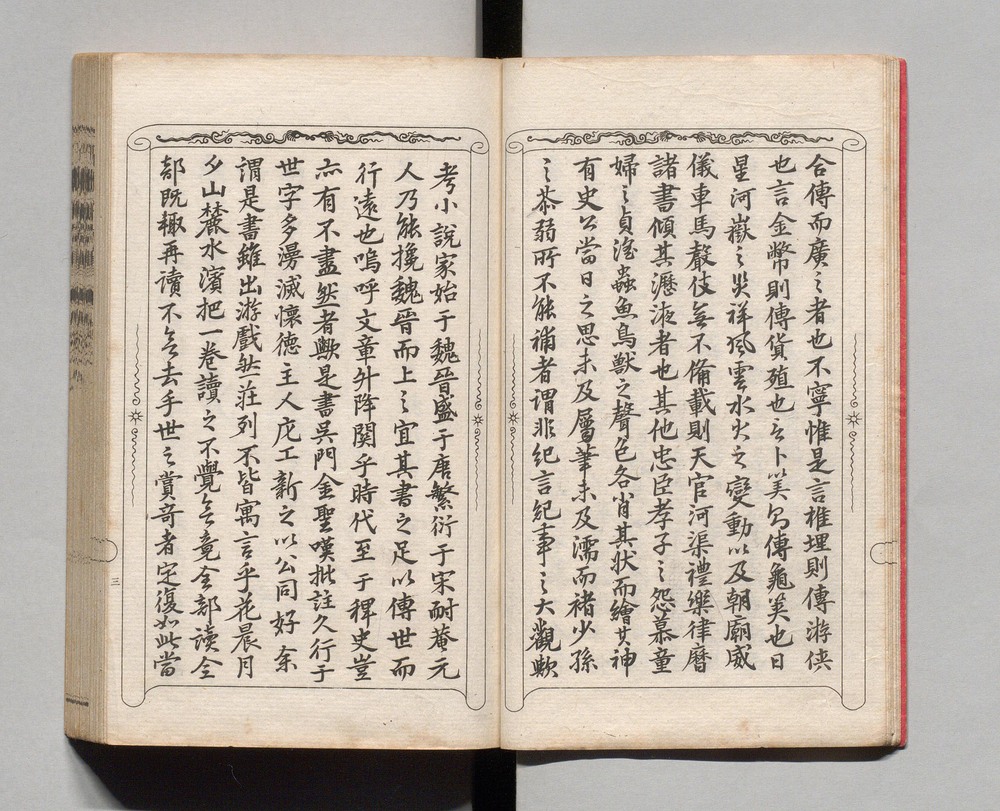 合傳而廣之者也不寧惟是言椎埋則傳游俠
也言金幣則傳貨殖也言卜筭即傳龜筴也日
星河嶽之災祥風雲水火之變動以及朝廟威
儀車馬聲伎無不備載則天官河渠禮樂律曆
諸書傾其瀝液者也其他忠臣孝子之怨慕童
婦之貞淫蟲魚鳥獸之聲色各肖其狀而繪其神
有史公當日之思未及屬筆未及濡而褚少孫
之荼弱所不能補者謂非紀言紀事之大觀歟
考小說家始于魏晉盛于唐繁衍于宋耐菴元
人乃能挽魏晉而上之宜其書之足以傳世而
行遠也嗚呼文章升降關乎時代至于稗史豈
亦有不盡然者歟是書吳門金聖嘆批註久行于
世字多漫滅懷德主人庀工新之以公同好余
謂是書雖出游戲然莊列不皆寓言乎花晨月
夕山麓水濱把一卷讀之不覺無竟全部讀全
部既輙再讀不無去手世之賞奇者定復如此當
三